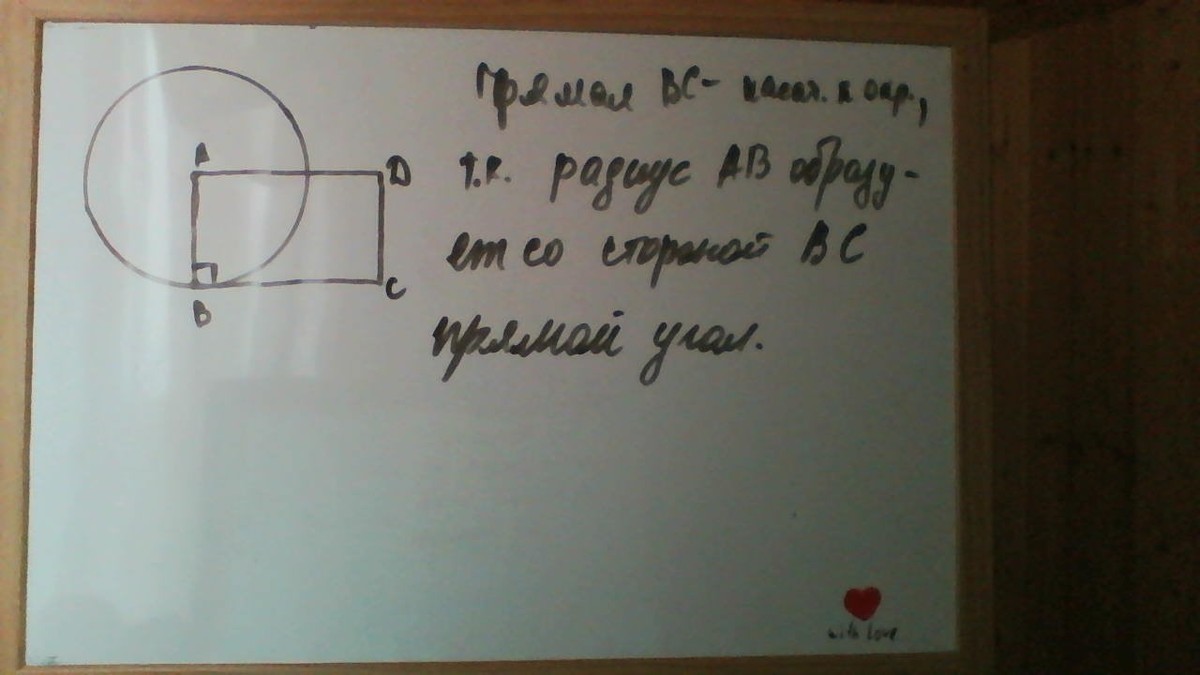 Прямая BC- касат. к окр.,
т.к. радиус AB образу-
ет со стороной BC
прямой угол.
A
D
B
C
with love